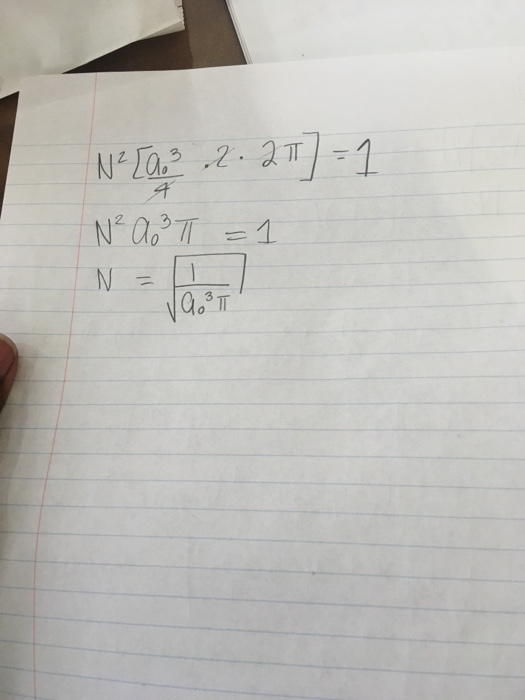 N² [a₀³/4 · 2 · 2π] = 1
N² a₀³ π = 1
N = √(1/(a₀³ π))